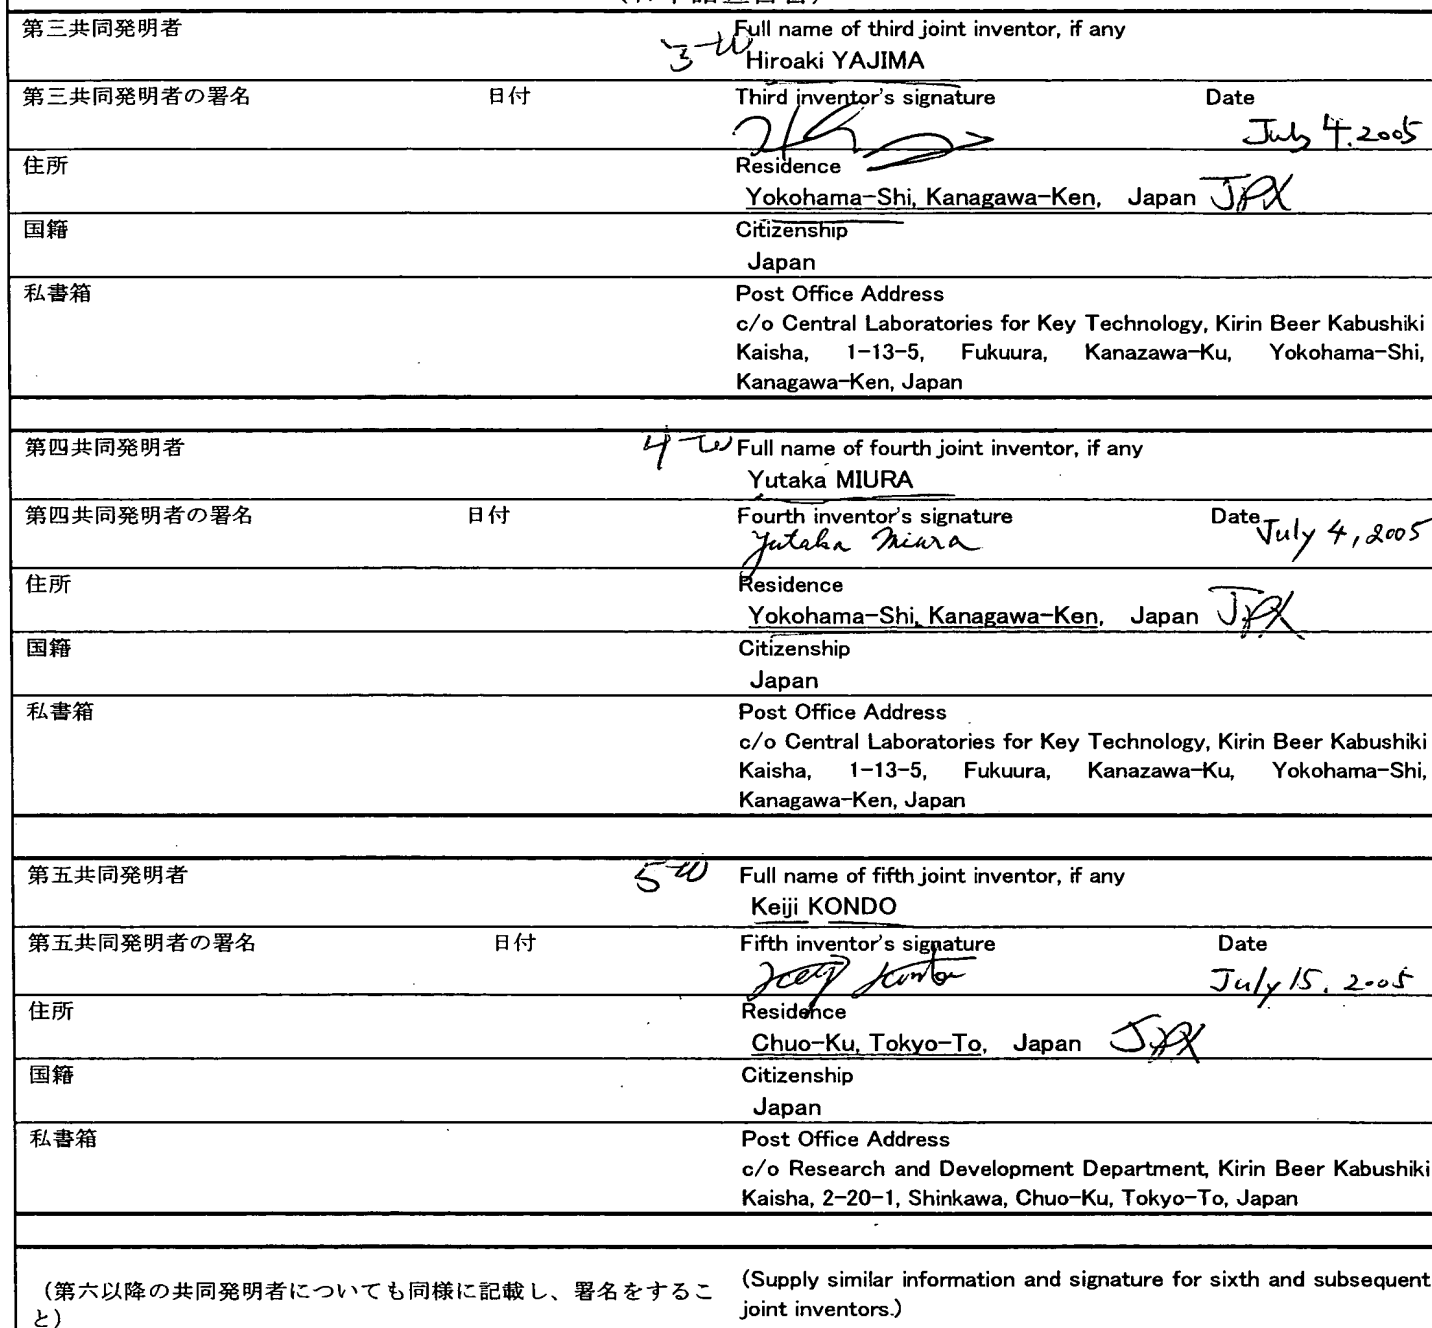 第三共同発明者
Full name of third joint inventor, if any
Hiroaki YAJIMA
第三共同発明者の署名 日付 Third inventor's signature Date
July 4.2005
住所 Residence
Yokohama-Shi, Kanagawa-Ken, Japan JPX
国籍 Citizenship
Japan
私書箱 Post Office Address
c/o Central Laboratories for Key Technology, Kirin Beer Kabushiki
Kaisha, 1-13-5, Fukuura, Kanazawa-Ku, Yokohama-Shi,
Kanagawa-Ken, Japan
第四共同発明者
Full name of fourth joint inventor, if any
Yutaka MIURA
第四共同発明者の署名 日付 Fourth inventor's signature Date
Yutaka Miura July 4, 2005
住所 Residence
Yokohama-Shi, Kanagawa-Ken, Japan JPX
国籍 Citizenship
Japan
私書箱 Post Office Address
c/o Central Laboratories for Key Technology, Kirin Beer Kabushiki
Kaisha, 1-13-5, Fukuura, Kanazawa-Ku, Yokohama-Shi,
Kanagawa-Ken, Japan
第五共同発明者
Full name of fifth joint inventor, if any
Keiji KONDO
第五共同発明者の署名 日付 Fifth inventor's signature Date
Keiji Kondo July 15. 2005
住所 Residence
Chuo-Ku, Tokyo-To, Japan JPX
国籍 Citizenship
Japan
私書箱 Post Office Address
c/o Research and Development Department, Kirin Beer Kabushiki
Kaisha, 2-20-1, Shinkawa, Chuo-Ku, Tokyo-To, Japan
(第六以降の共同発明者についても同様に記載し、署名をするこ
と)
(Supply similar information and signature for sixth and subsequent
joint inventors.)